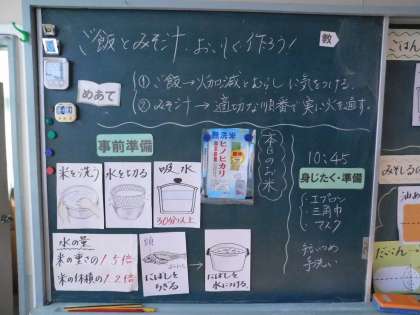 ご飯とみそ汁 おいしく作ろう!
教
めあて
① ご飯→火加減とむらしに気をつける。
② みそ汁→適切な順番で実に火を通す。
事前準備
米を洗う
水を切る
吸水
30分以上
無洗米
ヒノヒカリ
本日のお米
10:45
身じたく・準備
・エプロン
・三角巾
・マスク
手洗い
水の量
米の重さの1.5倍
米の体積の1.2倍
頭
にぼしを
ちぎる
→
にぼしを
水につける
ごはん
みそしるの
だいこん